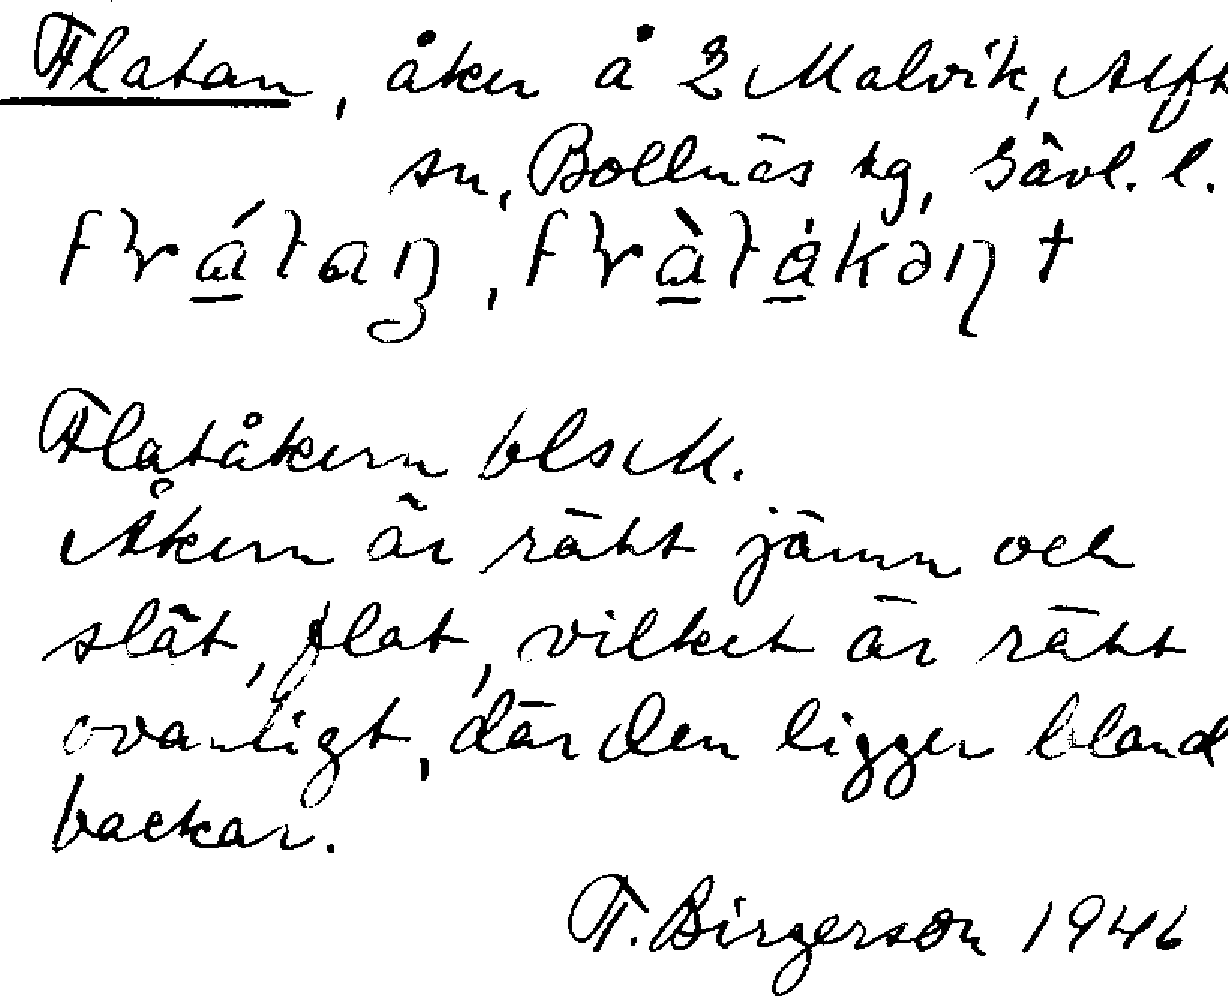 Flatan, åker å 2 Malvik, Alfta
sn, Bollnäs tg, Gävl. l.
Flatåkern bls M.
Åkern är rätt jämn och
slät, flat, vilket är rätt
ovanligt, där den ligger bland
backar.
F. Birgerson 1946